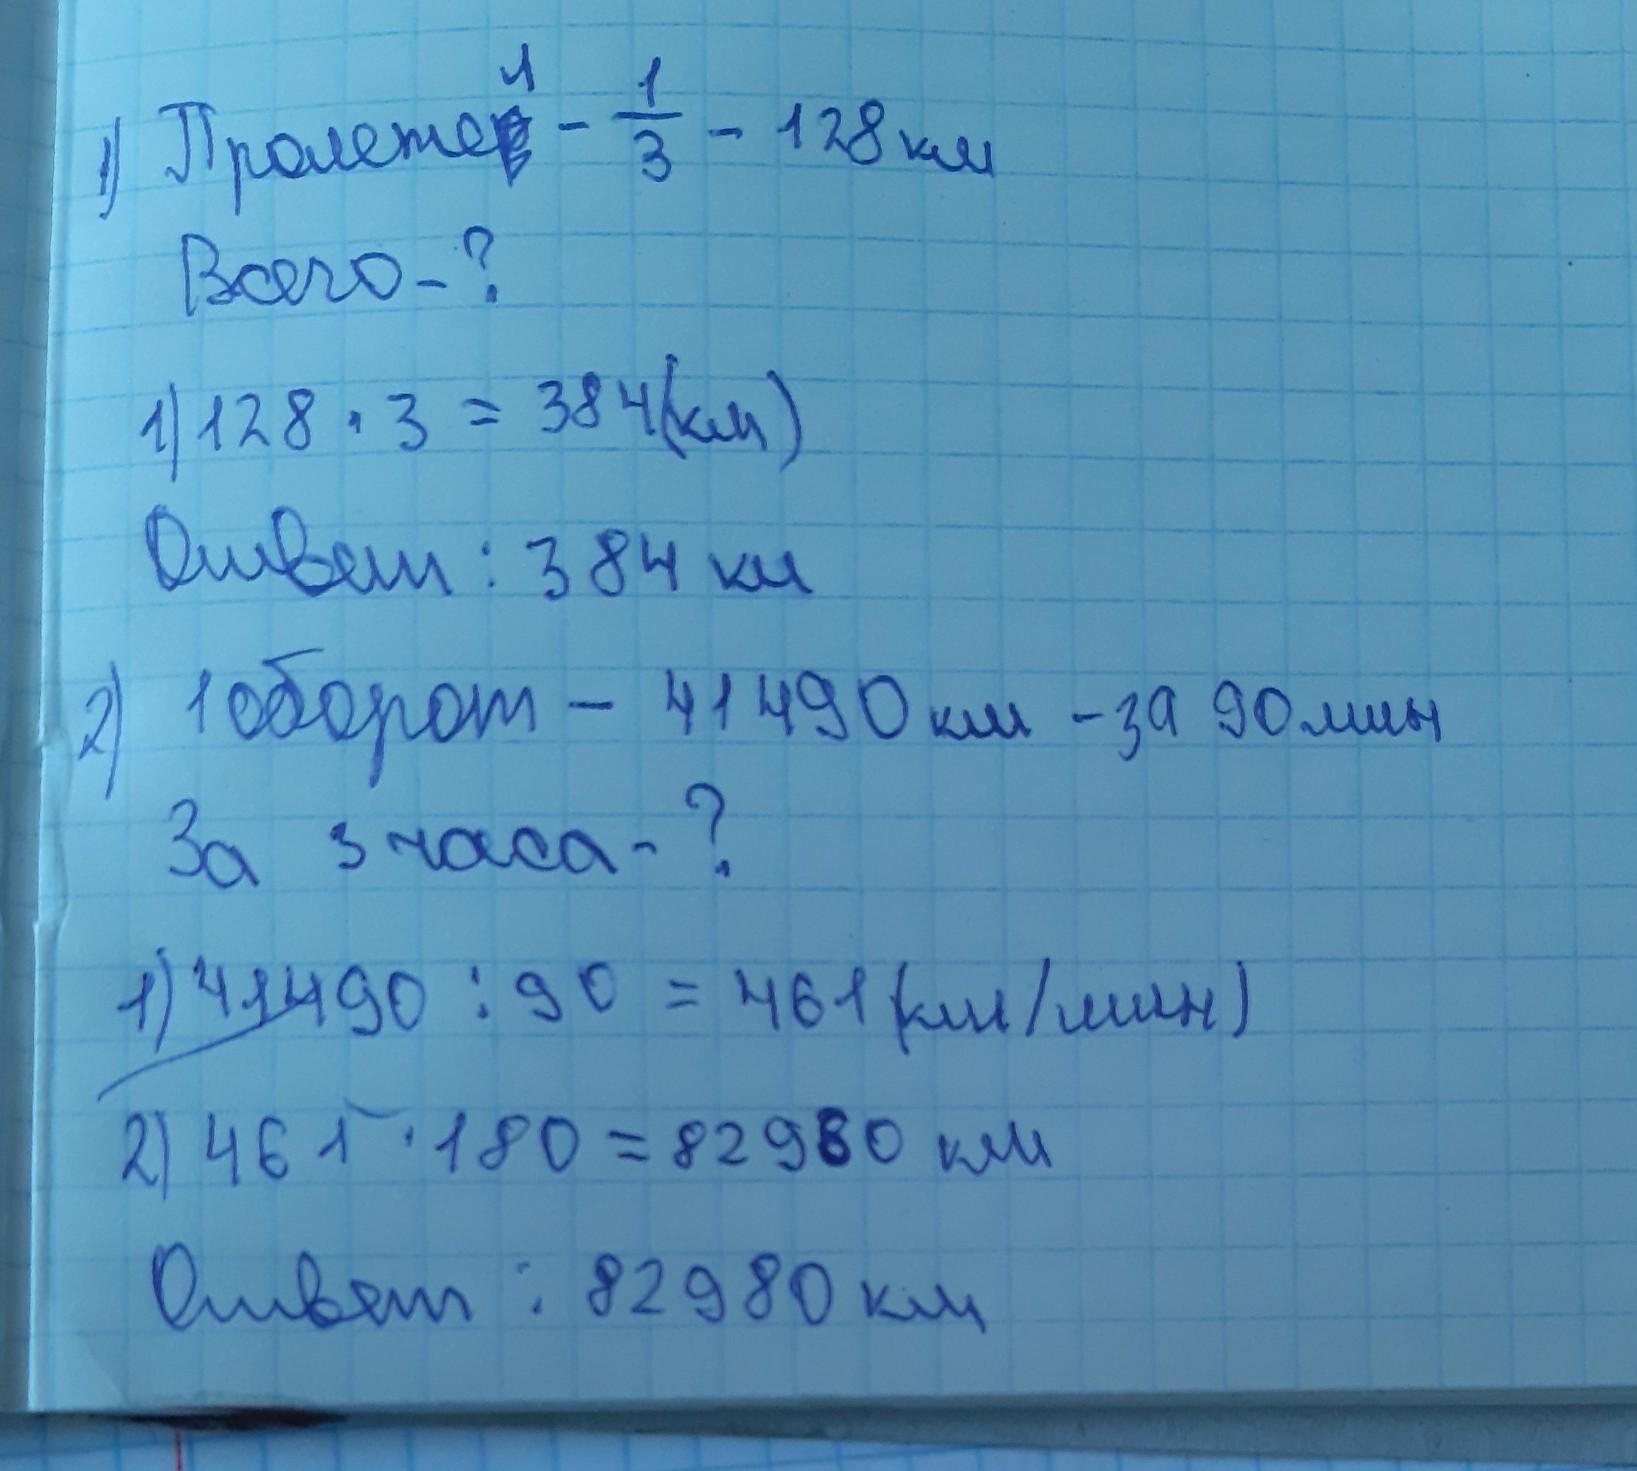 1) Пролетел - 1/3 - 128 км
Всего - ?
1) 128 · 3 = 384 (км)
Ответ : 384 км
2) 1 оборот - 41490 км - за 90 мин
За 3 часа - ?
1) 41490 : 90 = 461 (км/мин)
2) 461 · 180 = 82980 км
Ответ : 82980 км